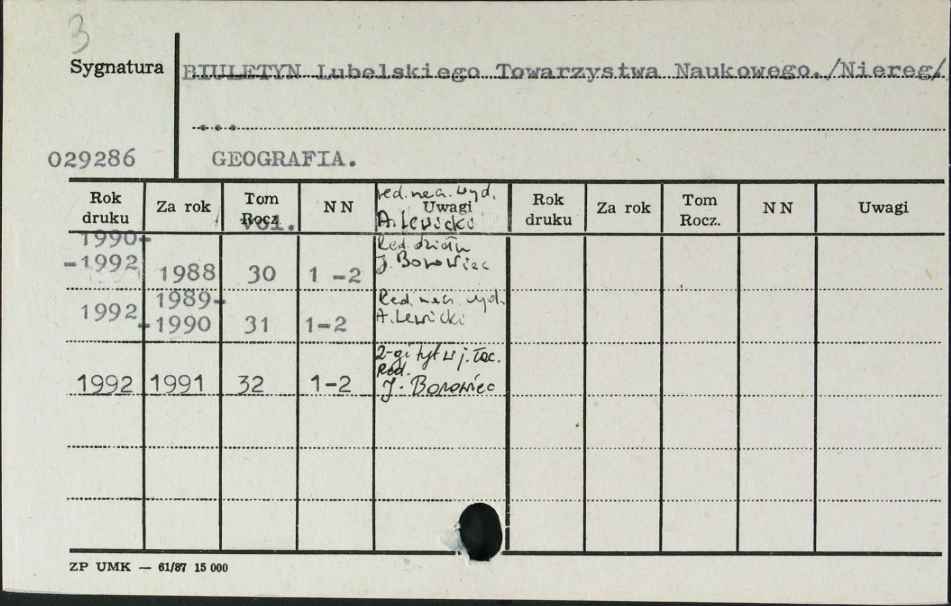 3
Sygnatura BIULETYN Lubelskiego Towarzystwa Naukowego./Niereg/
...
029286 GEOGRAFIA.
Rok druku Za rok Tom Rocz. Vol. NN red. nacz. wyd. Uwagi A. Lewicki Rok druku Za rok Tom Rocz. NN Uwagi
1990-
-1992 1988 30 1-2 Red. działu J. Borowiec
1992 1989-
-1990 31 1-2 Red. nacz. wyd. A. Lewicki
2-gi tyt w j. łac.
Red.
1992 1991 32 1-2 J. Borowiec
ZP UMK — 61/87 15 000